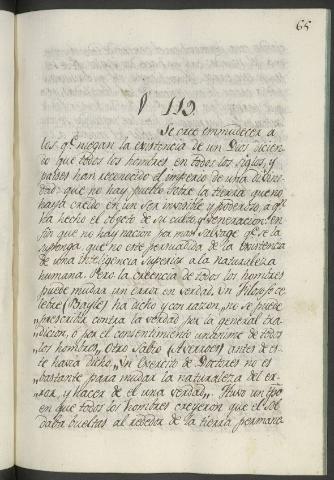 65
§ 119.
Se cree emmudecer a
los q.e niegan la existencia de un Dios dicien-
do que todos los hombres en todos los siglos, y
paises han reconocido el imperio de una divini-
dad: que no hay pueblo sobre la tierra que no
haya creido en un ser invisible y poderoso, a q.n
ha hecho el objeto de su culto, y veneracion: en
fin que no hay nacion por mas salvage q.e se la
suponga que no esté persuadida de la existencia
de una inteligencia superior a la naturaleza
humana. Pero la creencia de todos los hombres
puede mudar un error en verdad. Un Filosofo ce-
lebre (Bayle) ha dicho y con razon, no se puede
„prescribir contra la verdad por la general tra-
„dicion, ó por el consentimiento unanime de todos
„los hombres„ Otro Sabio (Averroes) antes de es-
te havia dicho „Un Exercito de Doctores no es
„bastante para mudar la naturaleza del er-
„ror, y hacer de el una verdad„. Huvo un tpo
en que todos los hombres creyeron que el Sol
daba bueltas al rededor de la tierra permane-